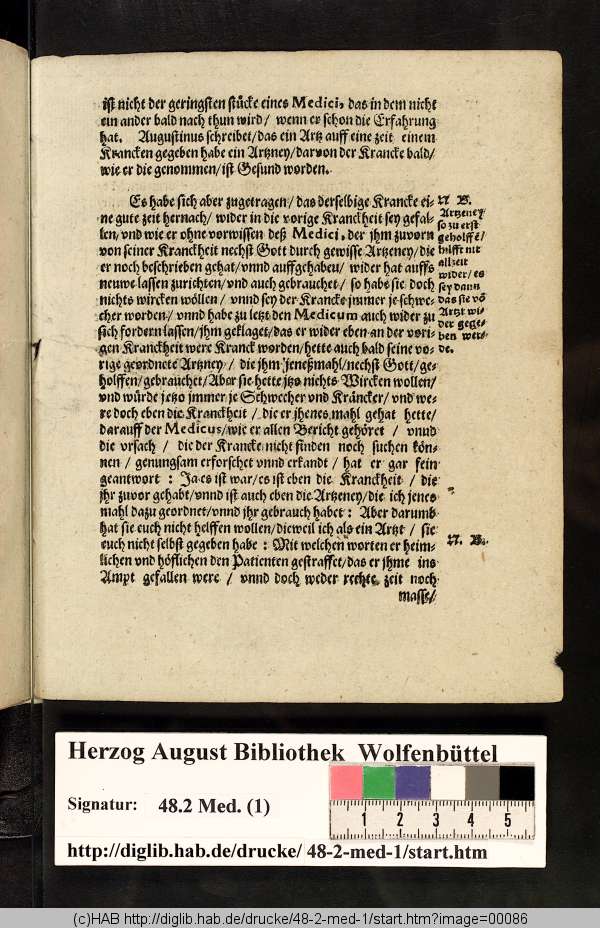 ist nicht der geringsten stücke eines Medici, das in dem nicht
ein ander bald nach thun wird/ wenn er schon die Erfahrung
hat. Augustinus schreibet/das ein Artz auff eine zeit einem
Krancken gegeben habe ein Artzney/darvon der Krancke bald/
wie er die genommen/ist Gesund worden.
Es habe sich aber zugetragen/ das derselbige Krancke ei-
ne gute zeit hernach/ wider in die vorige Kranckheit sey gefal-
len/vnd wie er ohne vorwissen deß Medici, der jhm zuvorn
von seiner Kranckheit nechst Gott durch gewisse Artzeney/die
er noch beschrieben gehat/vnnd auffgehabeu/ wider hat auffs
neuwe lassen zurichten/vnd auch gebrauchet/ so habe sie doch
nichts wircken wöllen/ vnnd sey der Krancke jmmer je schwe-
cher worden/ vnnd habe zu letzt den Medicum auch wider zu
sich fordern lassen/jhm geklaget/das er wider eben an der vori-
gen Kranckheit were Kranck worden/hette auch bald seine vo-
rige geordnete Artzney/ die jhm jeneßmahl/nechst Gott/ge-
holffen/gebrauchet/Aber sie hette jtzo nichts Wircken wollen/
vnd würde jetzo jmmer je Schwecher vnd Kräncker/ vnd we-
re doch eben die Kranckheit/ die er jhenes mahl gehat hette/
darauff der Medicus/wie er allen Bericht gehöret/ vnud
die vrsach/ die der Krancke nicht finden noch suchen kön-
nen/ genungsam erforschet vnnd erkandt/ hat er gar fein
geantwort: Ja es ist war/es ist eben die Kranckheit/ die
jhr zuvor gehabt/vnnd ist auch eben die Artzeney/die ich jenes
mahl dazu geordnet/vnnd jhr gebrauch habet: Aber darumb
hat sie euch nicht helffen wollen/dieweil ich als ein Artzt/ sie
euch nicht selbst gegeben habe: Mit welchen worten er heim-
lichen vnd höflichen den Patienten gestraffet/das er jhme ins
Ampt gefallen were/ vnnd doch weder rechte zeit noch
masse/
N. B.
Artzeney
so zu erst
geholffē/
hilfft nit
allzeit
wider/es
sey dann
das sie vō
Artzt wi-
der gege-
ben wer-
de.
N. B.
Herzog August Bibliothek Wolfenbüttel
Signatur: 48.2 Med. (1)
1 2 3 4 5
http://diglib.hab.de/drucke/ 48-2-med-1/start.htm
(c)HAB http://diglib.hab.de/drucke/48-2-med-1/start.htm?image=00086